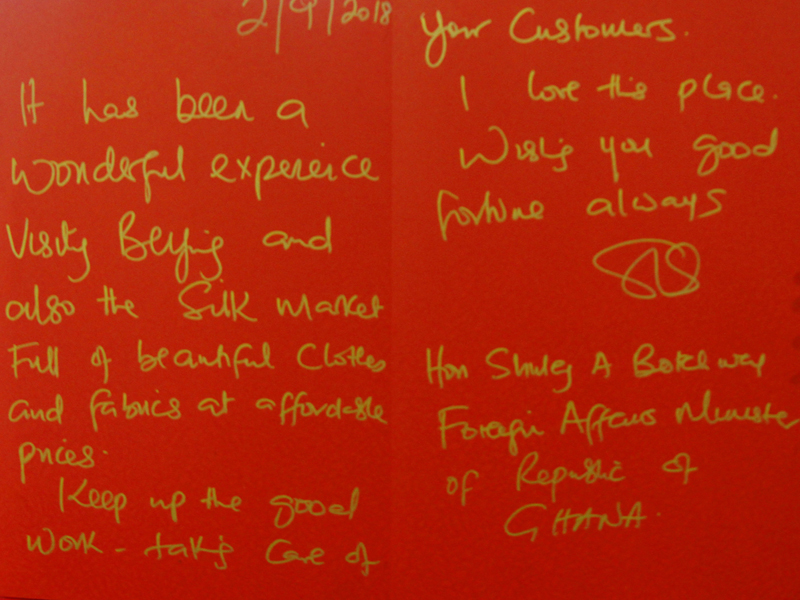 2/9/2018
It has been a
wonderful expereice
Visiting Beijing and
also the Silk Market
Full of beautiful Clothes
and fabrics at affordable
prices.
Keep up the good
work - taking care of
your Customers.
I love this place.
Wishing you good
fortune always
Hon Shirley A Botchwey
Foreign Affairs Minister
of Republic of
GHANA.